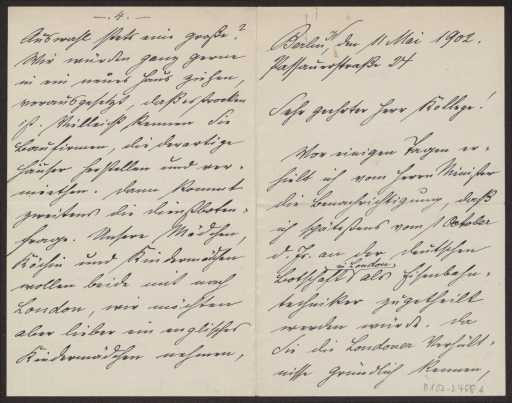 — 4. —
Auswahl stets eine große?
Wir würden ganz gerne
in ein neues Haus ziehen,
vorausgesetzt, daß es trocken
ist. Vielleicht kennen Sie
Baufirmen, die derartige
Häuser herstellen und ver-
mieten. Dann kommt
zweitens die Dienstboten-
frage. Unsere Mädchen,
Köchin und Kindermädchen
wollen beide mit nach
London, wir möchten
aber lieber ein englisches
Kindermädchen nehmen,
Berlin, den 11 Mai 1902.
Passauerstraße 34
Sehr geehrter Herr Kollege!
Vor einigen Tagen er-
hielt ich vom Herrn Minister
die Benachrichtigung, daß
ich spätestens vom 1 October
d. Js. an der deutschen
Botschaft in London als Eisenbahn-
techniker zugetheilt
werden würde. Da
Sie die Londoner Verhält-
nisse gründlich kennen,